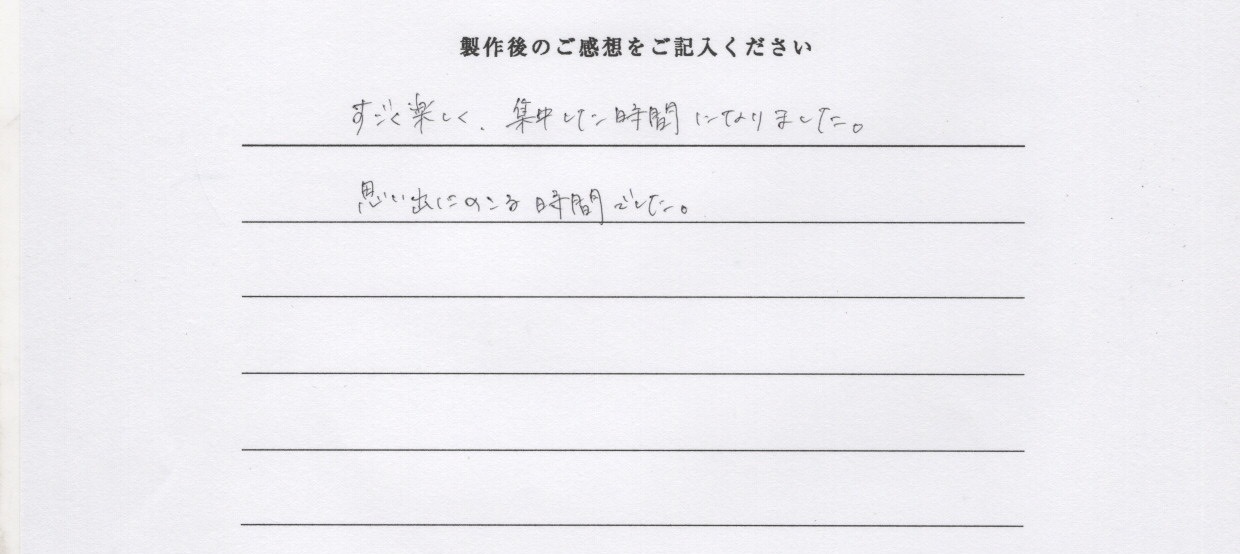 製作後のご感想をご記入ください
すごく楽しく、集中した時間になりました。
思い出にのこる時間でした。